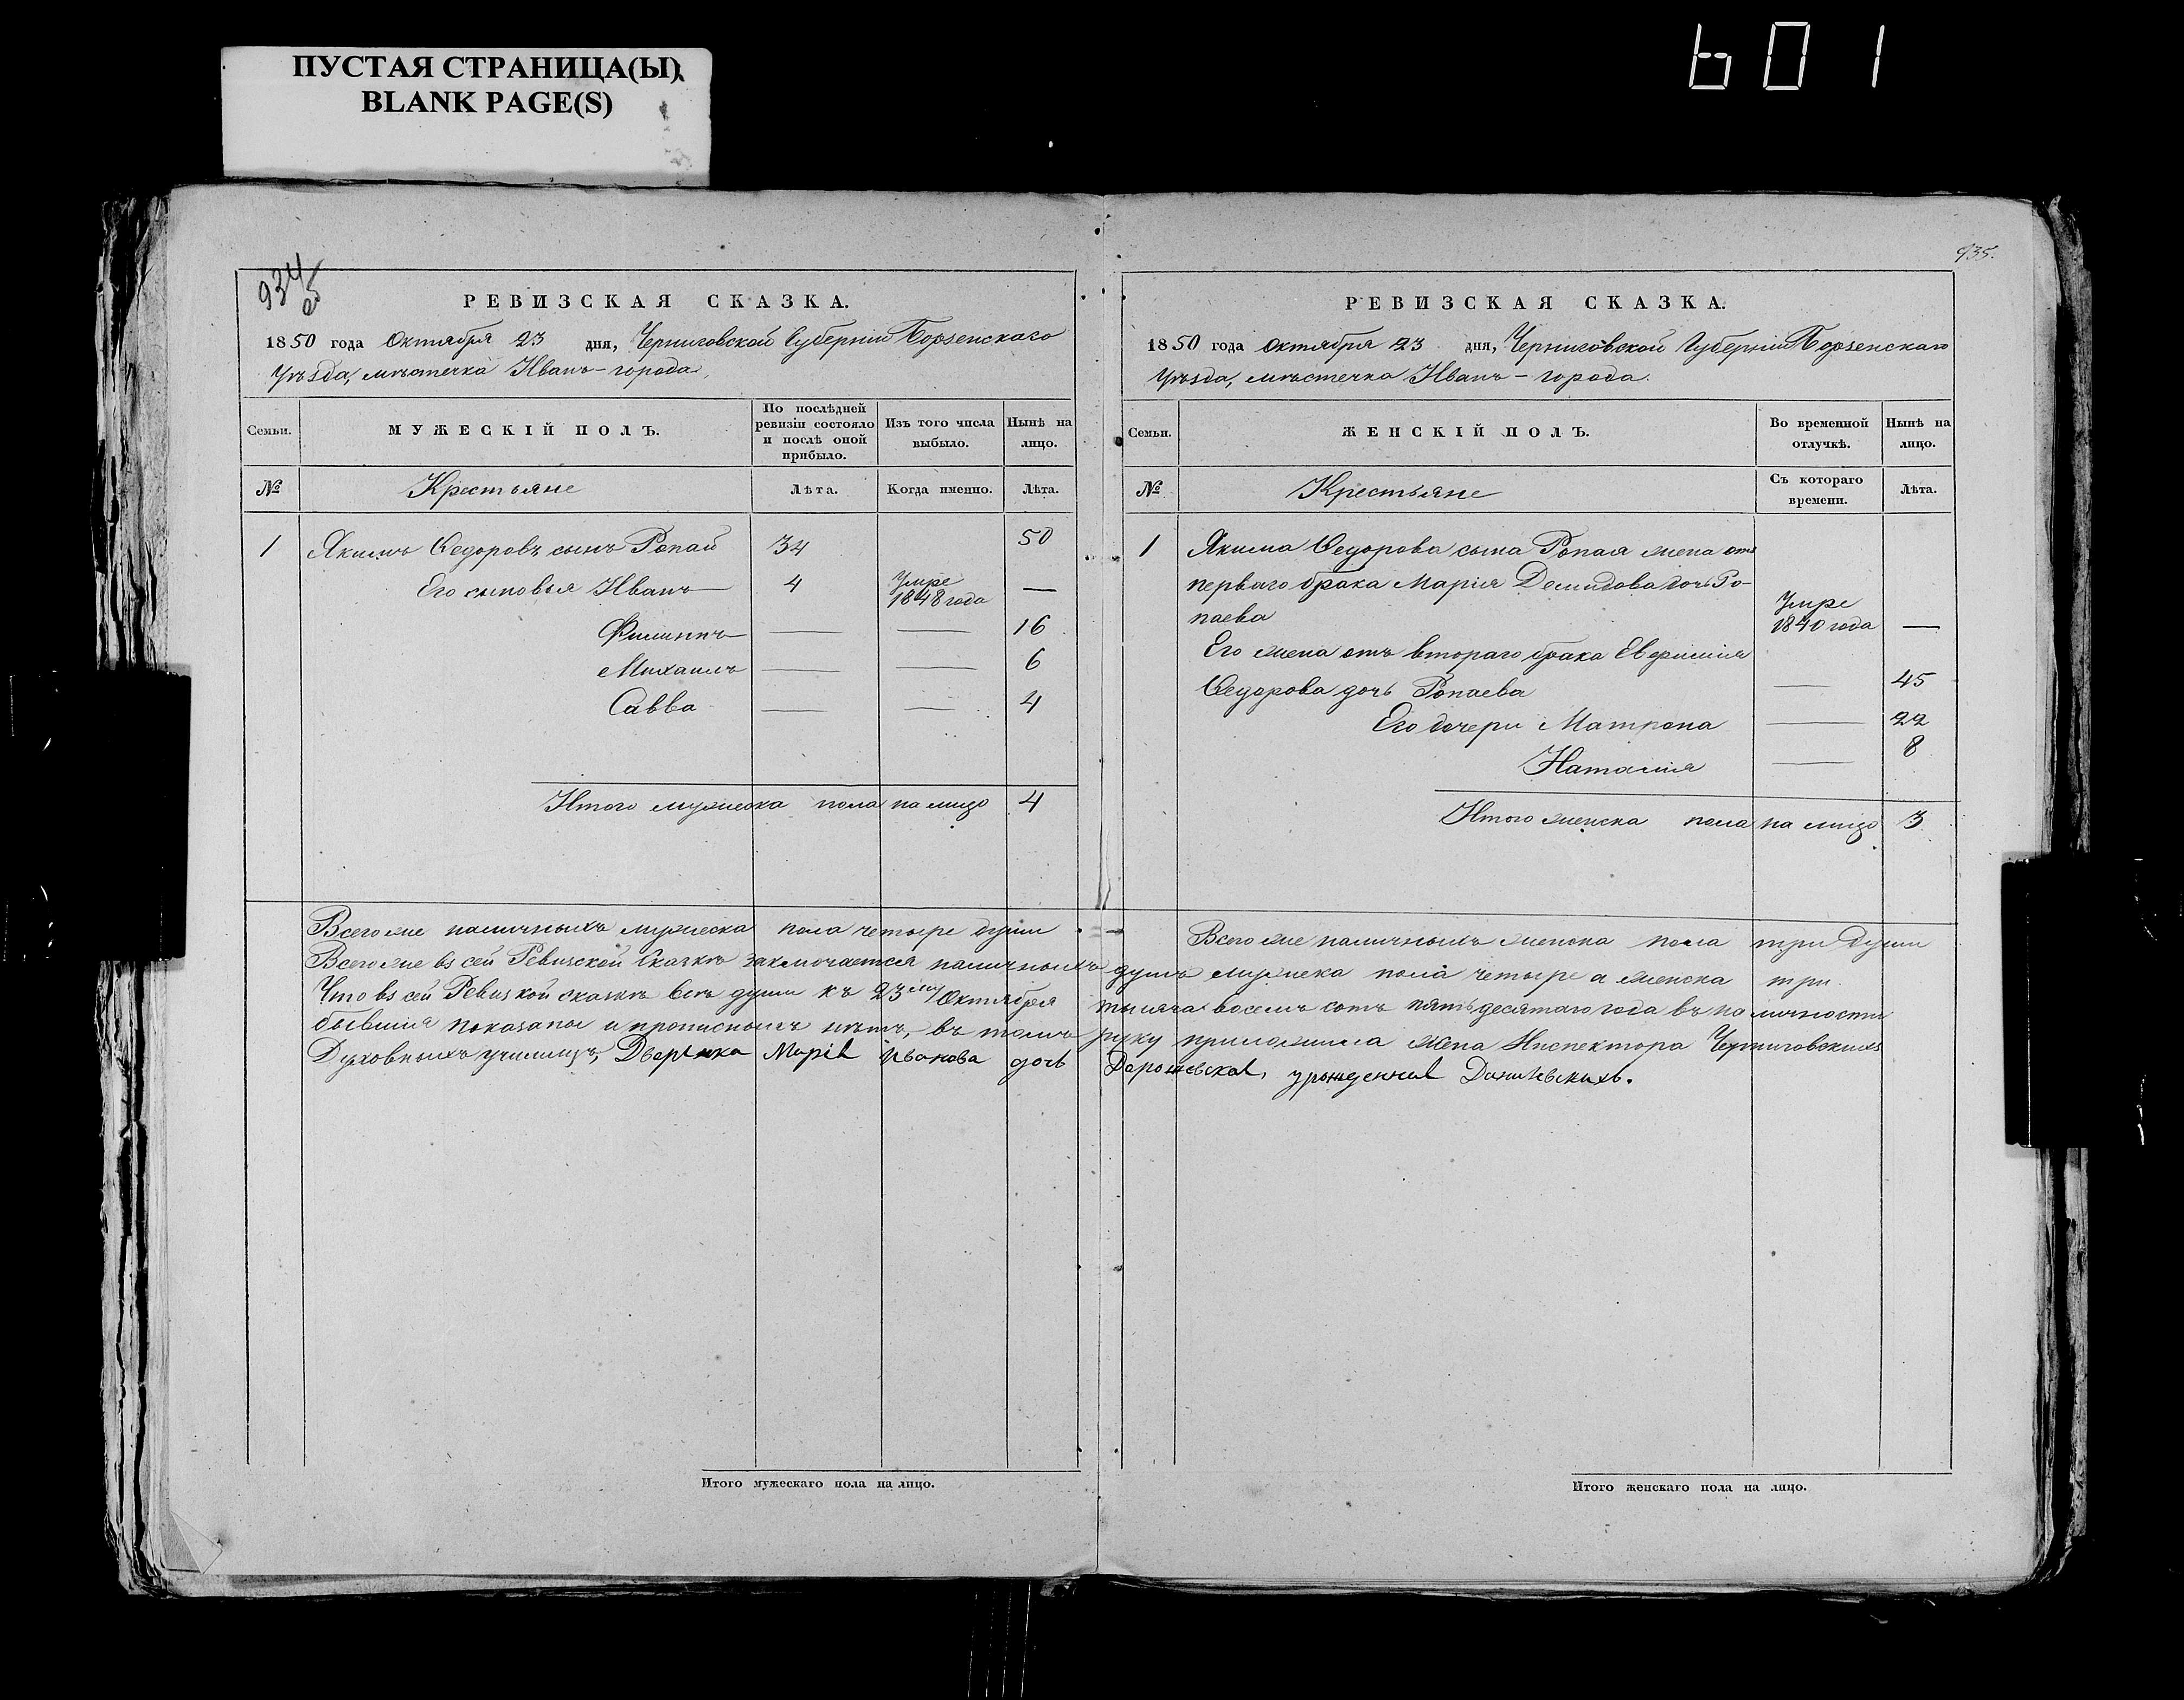 ПУСТАЯ СТРАНИЦА(Ы)
BLANK PAGE(S)
601
934
935.
РЕВИЗСКАЯ СКАЗКА.
1850 года Октября 23 дня, Черниговской Губерніи Борзенскаго
Уѣзда, мѣстечка Иванъ-города,
Семьи.
МУЖЕСКІЙ ПОЛЪ.
По послѣдней ревизіи состояло и послѣ оной прибыло.
Изъ того числа выбыло.
Нынѣ на лицо.
№ Крестьяне Лѣта. Когда именно. Лѣта.
1 Якимъ Ѳедоровъ сынъ Ропай 34 50
Его сыновья Иванъ 4 Умре 1848 года —
Филиппъ — — 16
Михаилъ — — 6
Савва — — 4
Итого мужеска пола на лицо 4
РЕВИЗСКАЯ СКАЗКА.
1850 года Октября 23 дня, Черниговской Губерніи Борзенскаго
Уѣзда, мѣстечка Иванъ-города.
Семьи.
ЖЕНСКІЙ ПОЛЪ.
Во временной отлучкѣ.
Нынѣ на лицо.
№ Крестьяне Съ котораго времени. Лѣта.
1 Якима Ѳедорова сына Ропая жена отъ
перваго брака Марія Демидова дочь Ро-
паева Умре 1840 года —
Его жена отъ втораго брака Евфимія
Ѳедорова дочь Ропаева — 45
Его дочери Матрона — 22
Наталія — 8
Итого женска пола на лицо 3
Всего же наличныхъ мужеска пола четыре души
Всего же наличныхъ женска пола три души
Всего же въ сей Ревизской Сказкѣ заключается наличныхъ душъ мужека пола четыре а женска три.
Что въ сей Ревизкой сказкѣ всѣ души къ 23 Октября тысяча восемь сотъ пятьдесятаго года въ наличности
бывшія показаны и прописныхъ нѣтъ, въ томъ руку приложила жена Инспектора Черниговскихъ
Духовныхъ училищъ, Марія Иванова дочь урожденная
Итого мужескаго пола на лицо.
Итого женскаго пола на лицо.